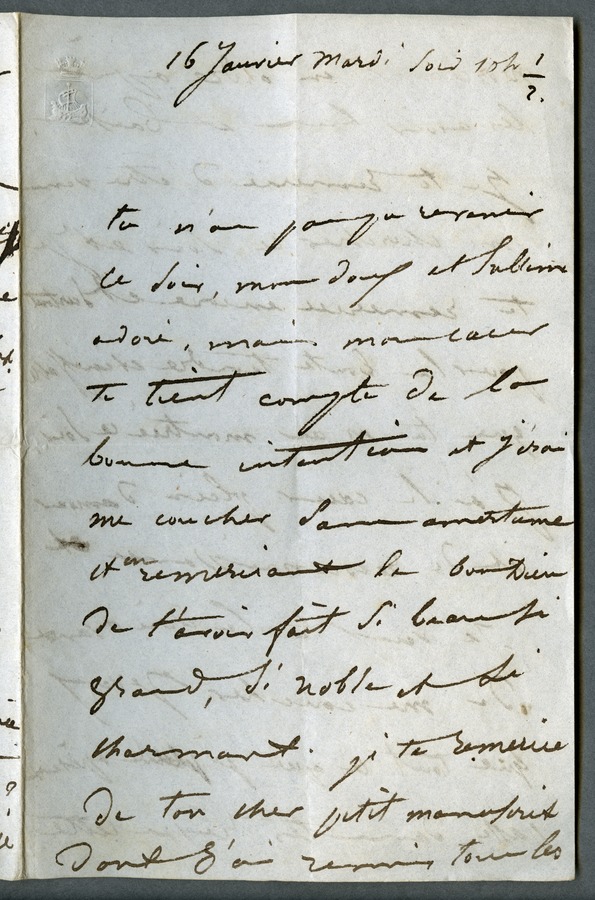 16 Janvier Mardi Soir 10h 1/2.
tu n'as pas pu revenir
ce soir, mon doux et sublime
adoré, mais mon cœur
te tient compte de la
bonne intention et j'irai
me coucher sans amertume
et en remerciant le bon Dieu
de t'avoir fait si beau si
grand, si noble et si
charmant. je te remercie
de ton cher petit manuscrit
dont j'ai remis tous les